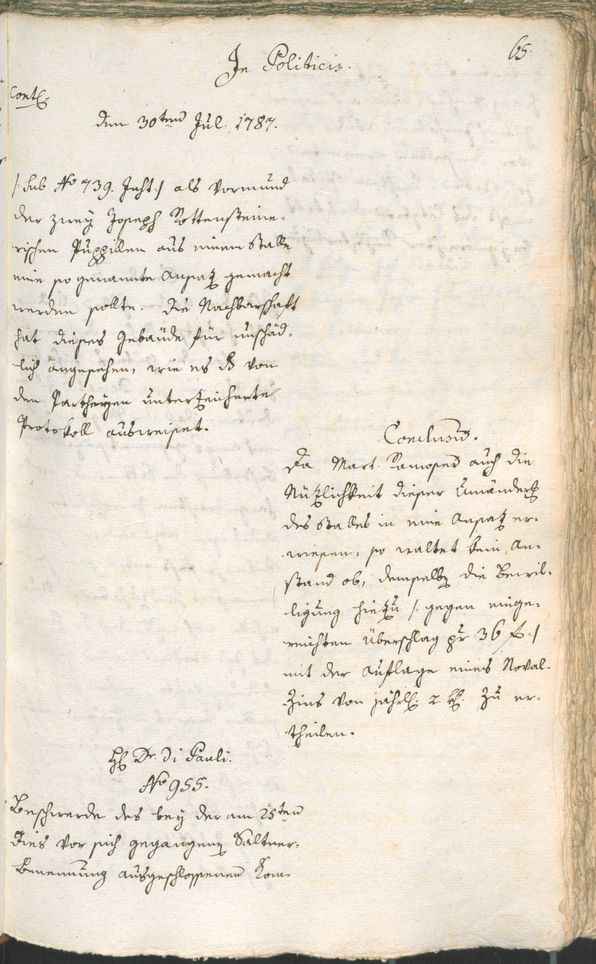 65.
In Politicis.
Cont.
den 30ten Jul. 1787.
/: sub No 739. Inst :/ als Vormund
der zwey Joseph Rottensteine-
rischen Puppillen aus einem Stalle
eine so genannte Ansatz gemacht
werden sollte. Die Nachbarschaft
hat dieses Gebäude für unschäd-
lich angesehen, wie es d von
den Partheyen unterzeichnete
Protokoll ausweiset.
Conclusum.
Da Mart. Ramoser auch die
Nützlichkeit dieser Umänderg
des Stalles in eine Ansatz er-
wiesen, so waltet kein An-
stand ob, demselben die Bewil-
ligung hiezu /: gegen einge-
reichten Überschlag pr 36 f :/
mit der Auflage eines Noval-
Zins von jährl. 2 kr. zu er-
theilen.
H Dr. Di Pauli.
No 955.
Beschwerde des bey der am 25ten
dies vor sich gegangenen Saltner-
Benennung ausgeschlossenen Kom-